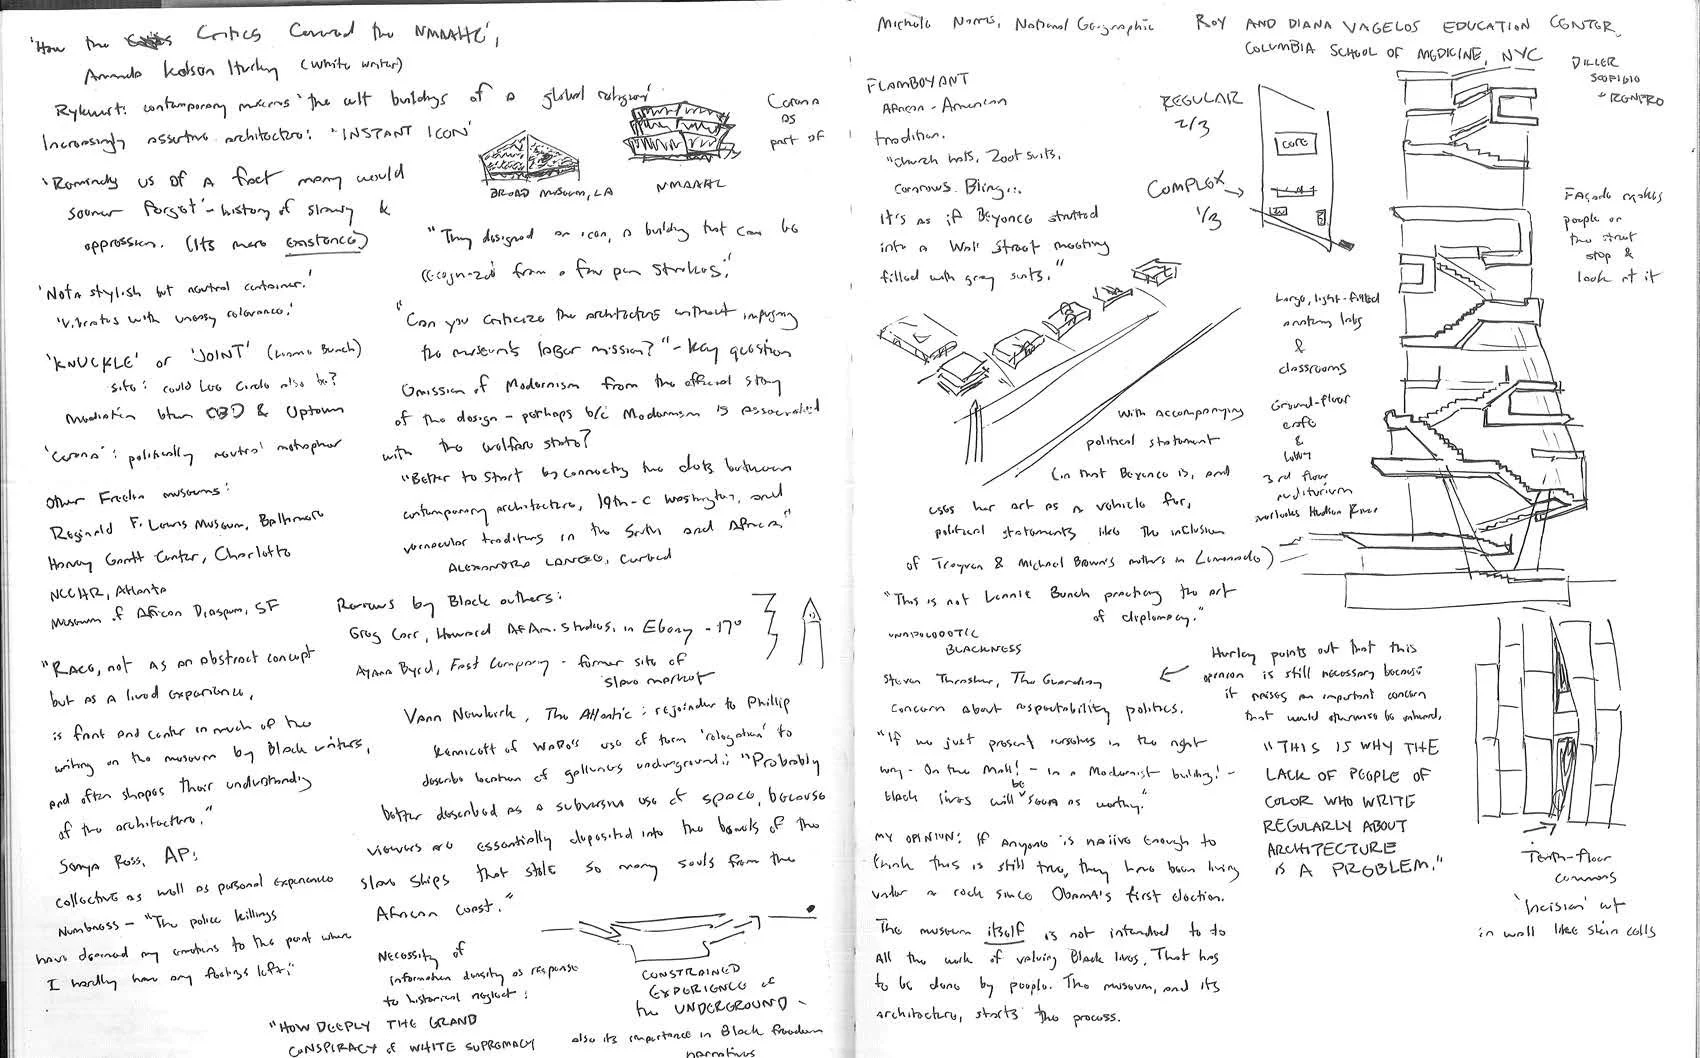 'How the Critics Covered the NMAAHC',
Amanda Kolson Hurley (white writer)
Rykwert: contemporary museums 'the cult buildings of a global religion'
Increasingly assertive architecture: 'INSTANT ICON'
'Reminds us of a fact many would
sooner forget' - history of slavery &
oppression. (Its mere existence)
BROAD MUSEUM, LA
NMAAHC
Corona
as
part of
'Not a stylish but neutral container.'
'Vibrates with uneasy relevance.'
'KNUCKLE' or 'JOINT' (Lonnie Bunch)
site: could Lee Circle also be?
Mediation btwn CBD & Uptown
'Corona': politically neutral metaphor
Other Freelon museums:
Reginald F. Lewis Museum, Baltimore
Harvey Gantt Center, Charlotte
NCCHR, Atlanta
Museum of African Diaspora, SF
"Race, not as an abstract concept
but as a lived experience,
is front and center in much of the
writing on the museum by Black writers,
and often shapes their understanding
of the architecture."
Sonya Ross, AP:
collective as well as personal experience
Numbness - "The police killings
have deadened my emotions to the point where
I hardly have any feelings left."
"They designed an icon, a building that can be
recognized from a few pen strokes."
"Can you criticize the architecture without impugning
the museum's larger mission?" - key question
Omission of Modernism from the official story
of the design - perhaps b/c Modernism is associated
with the welfare state?
"Better to start by connecting the dots between
contemporary architecture, 19th-c Washington, and
vernacular traditions in the South and Africa."
ALEXANDRA LANGE, Curbed
Reviews by Black authors:
Greg Carr, Howard Af Am. Studies, in Ebony - 17°
Ayana Byrd, Fast Company - former site of
slave market
Vann Newkirk, The Atlantic: rejoinder to Phillip
Kennicott of WaPo's use of term 'relegation' to
describe location of galleries underground: "Probably
better described as a subversive use of space, because
viewers are essentially deposited into the bowels of the
slave ships that stole so many souls from the
African coast."
Necessity of
information density as response
to historical neglect:
"HOW DEEPLY THE GRAND
CONSPIRACY of WHITE SUPREMACY
CONSTRAINED
EXPERIENCE of
the UNDERGROUND -
also its importance in Black freedom
narratives
Michele Norris, National Geographic
FLAMBOYANT
African-American
tradition.
"Church hats, Zoot suits.
Cornrows. Bling...
It's as if Beyonce strutted
into a Wall Street meeting
filled with gray suits."
with accompanying
political statement
(in that Beyonce is, and
uses her art as a vehicle for,
political statements like the inclusion
of Trayvon & Michael Brown's mothers in Lemonade)
"This is not Lonnie Bunch practicing the art
of diplomacy."
UNAPOLOGETIC
BLACKNESS
Steven Thrasher, The Guardian
concern about respectability politics.
"If we just present ourselves in the right
way - On the Mall! - in a Modernist building! -
black lives will be "seen as worthy."
Hurley points out that this
opinion is still necessary because
it raises an important concern
that would otherwise be unheard.
"THIS IS WHY THE
LACK OF PEOPLE OF
COLOR WHO WRITE
REGULARLY ABOUT
ARCHITECTURE
IS A PROBLEM."
MY OPINION: If anyone is naiive enough to
think this is still true, they have been living
under a rock since Obama's first election.
The museum itself is not intended to do
all the work of valuing Black lives. That has
to be done by people. The museum, and its
architecture, starts the process.
ROY AND DIANA VAGELOS EDUCATION CENTER,
COLUMBIA SCHOOL OF MEDICINE, NYC
DILLER
SCOFIDIO
+ RENFRO
REGULAR
2/3
COMPLEX
1/3
CORE
Facade makes
people on
the street
stop &
look at it
Large, light-filled
anatomy labs
&
classrooms
Ground-floor
cafe
&
lobby
3rd floor
auditorium
overlooks Hudson River
Tenth-floor
commons
'incision' cut
in wall like skin cells